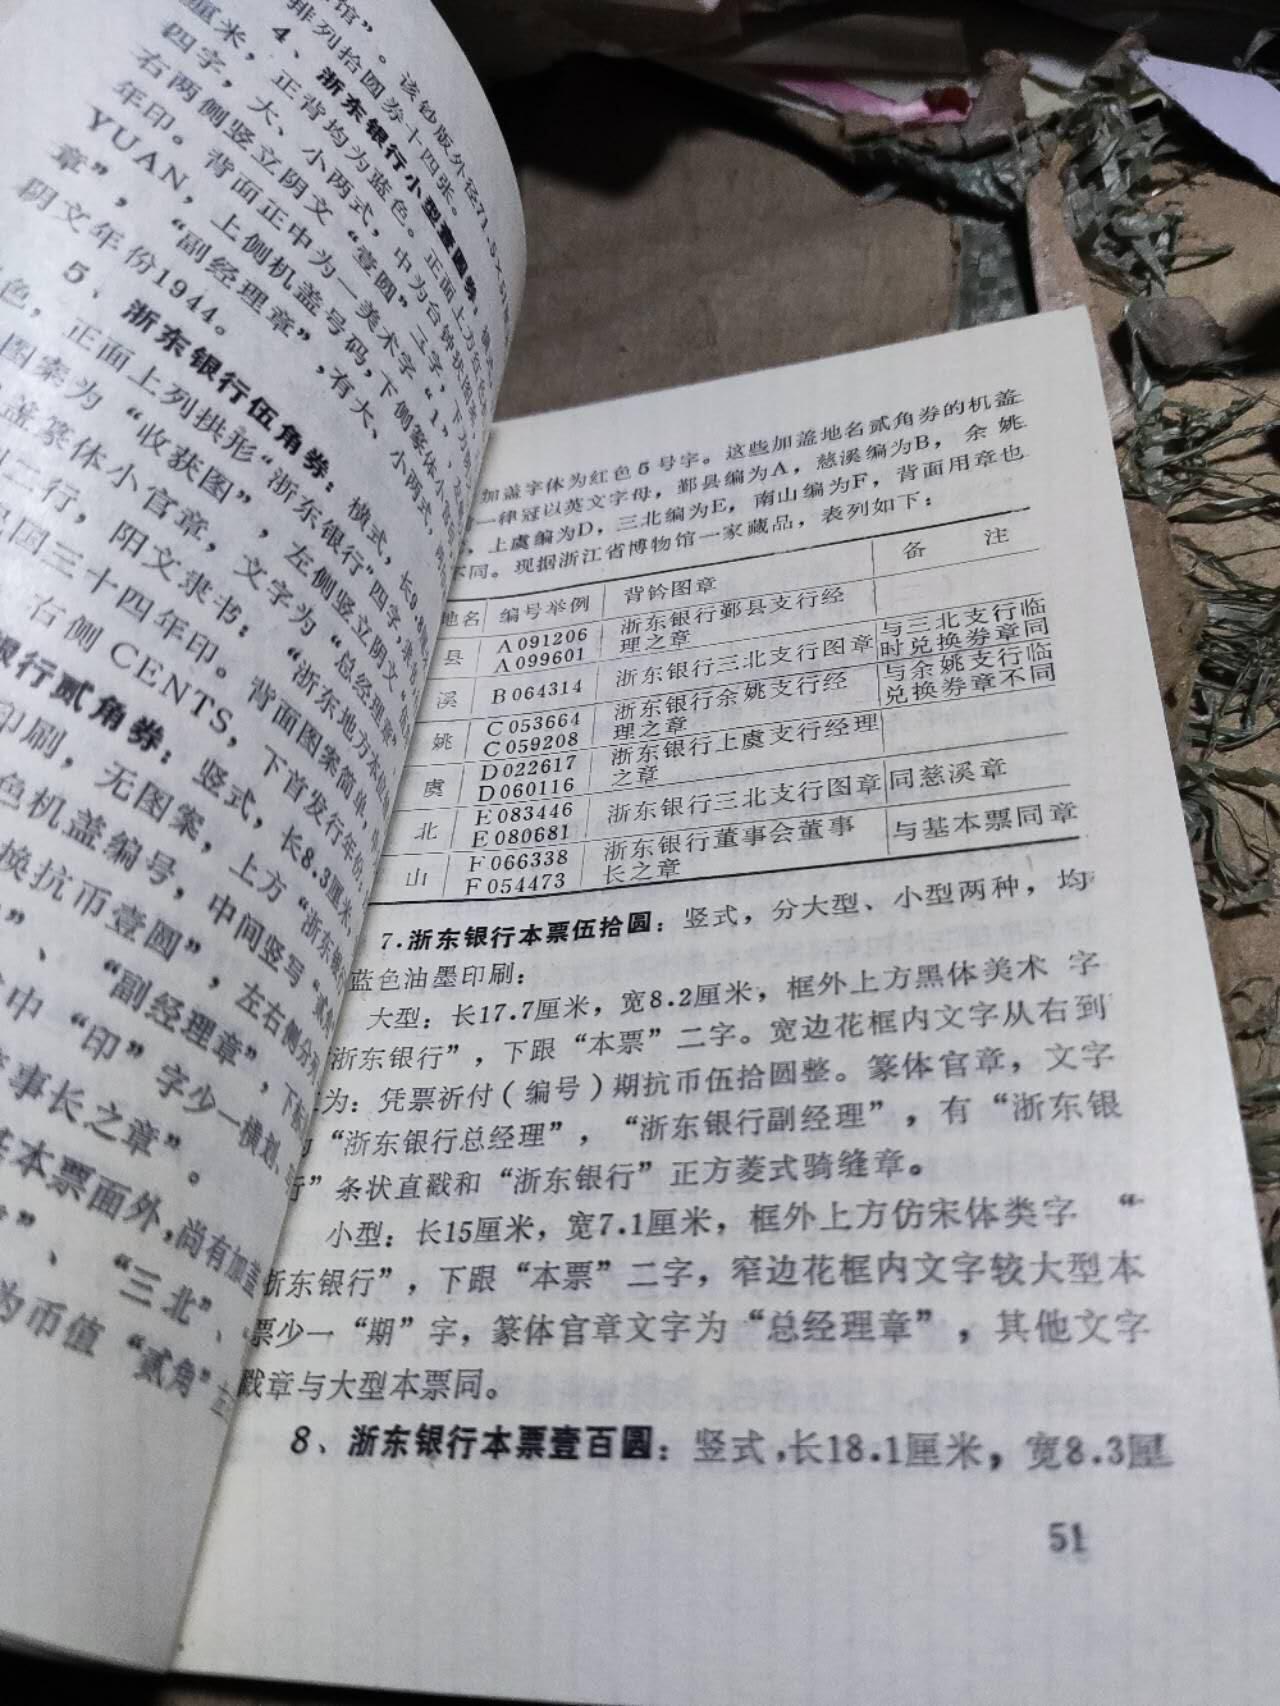 馆”。该钞版外径71.5×51
排列拾圆券十四张。
4、浙东银行小型壹圆券：
厘米，正背均为蓝色。正面上方
四字，大、小两式，中为台钟状图案，下方
右两侧竖立阴文“壹圆”二字，
年印。背面正中为一美术字“1”，
YUAN，上侧机盖号码，下侧篆体小官
章”，“副经理章”，有大、小两式，
阴文年份1944。
5、浙东银行伍角券：横式，长9.8
色，正面上列拱形“浙东银行”四字，
图案为“收获图”，左侧竖立阴文“伍
盖篆体小官章，文字为“总经理章”
二行，阳文隶书：“浙东地方本位
国三十四年印。背面图案简单，
右侧CENTS，下首发行年份
银行贰角券：竖式，长8.3厘米，
印刷，无图案，上方“浙东银
色机盖编号，中间竖写“贰角
换抗币壹圆”，左右侧分列
”、“副经理章”，下
中“印”字少一横划，
事长之章”。
本票面外，尚有加盖
”、“三北”、
为币值“贰角”
加盖字体为红色5号字。这些加盖地名贰角券的机盖
一律冠以英文字母，鄞县编为A，慈溪编为B，余姚
，上虞编为D，三北编为E，南山编为F，背面用章也
不同。现据浙江省博物馆一家藏品，表列如下：
地名 编号举例 背钤图章 备注
县 A091206 A099601 浙东银行鄞县支行经理之章
溪 B064314 浙东银行三北支行图章 与三北支行临时兑换券章同
姚 C053664 C059208 浙东银行余姚支行经理之章 与余姚支行临兑换券章不同
虞 D022617 D060116 浙东银行上虞支行经理之章
北 E083446 E080681 浙东银行三北支行图章 同慈溪章
山 F066338 F054473 浙东银行董事会董事长之章 与基本票同章
7.浙东银行本票伍拾圆：竖式，分大型、小型两种，均
蓝色油墨印刷：
大型：长17.7厘米，宽8.2厘米，框外上方黑体美术字
浙东银行”，下跟“本票”二字。宽边花框内文字从右到
为：凭票祈付（编号）期抗币伍拾圆整。篆体官章，文字
“浙东银行总经理”，“浙东银行副经理”，有“浙东银
行”条状直戳和“浙东银行”正方菱式骑缝章。
小型：长15厘米，宽7.1厘米，框外上方仿宋体类字“
浙东银行”，下跟“本票”二字，窄边花框内文字较大型本
票少一“期”字，篆体官章文字为“总经理章”，其他文字
戳章与大型本票同。
8、浙东银行本票壹百圆：竖式，长18.1厘米，宽8.3厘
51